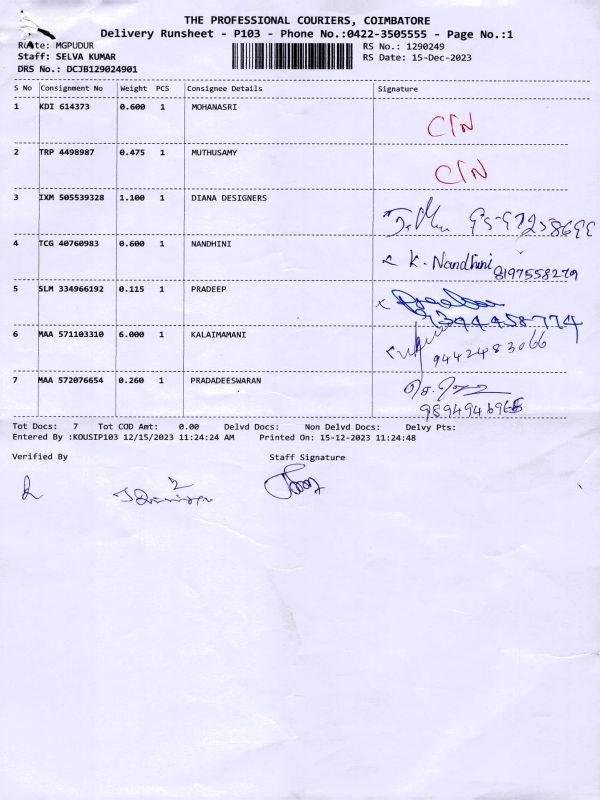 THE PROFESSIONAL COURIERS, COIMBATORE
Delivery Runsheet - P103 - Phone No.:0422-3505555 - Page No.:1
Route: MGPUDUR RS No.: 1290249
Staff: SELVA KUMAR RS Date: 15-Dec-2023
DRS No.: DCJB129024901
S No Consignment No Weight PCS Consignee Details Signature
1 KDI 614373 0.600 1 MOHANASRI
CIN
2 TRP 4498987 0.475 1 MUTHUSAMY
CIN
3 IXM 505539328 1.100 1 DIANA DESIGNERS
4 TCG 40760983 0.600 1 NANDHINI
K. Nandhini
8197558279
5 SLM 334966192 0.115 1 PRADEEP
9394458774
6 MAA 571103310 6.000 1 KALAIMAMANI
9442483066
7 MAA 572076654 0.260 1 PRADADEESWARAN
Tot Docs: 7 Tot COD Amt: 0.00 Delvd Docs: Non Delvd Docs: Delvy Pts:
Entered By :KOUSIP103 12/15/2023 11:24:24 AM Printed On: 15-12-2023 11:24:48
Verified By Staff Signature